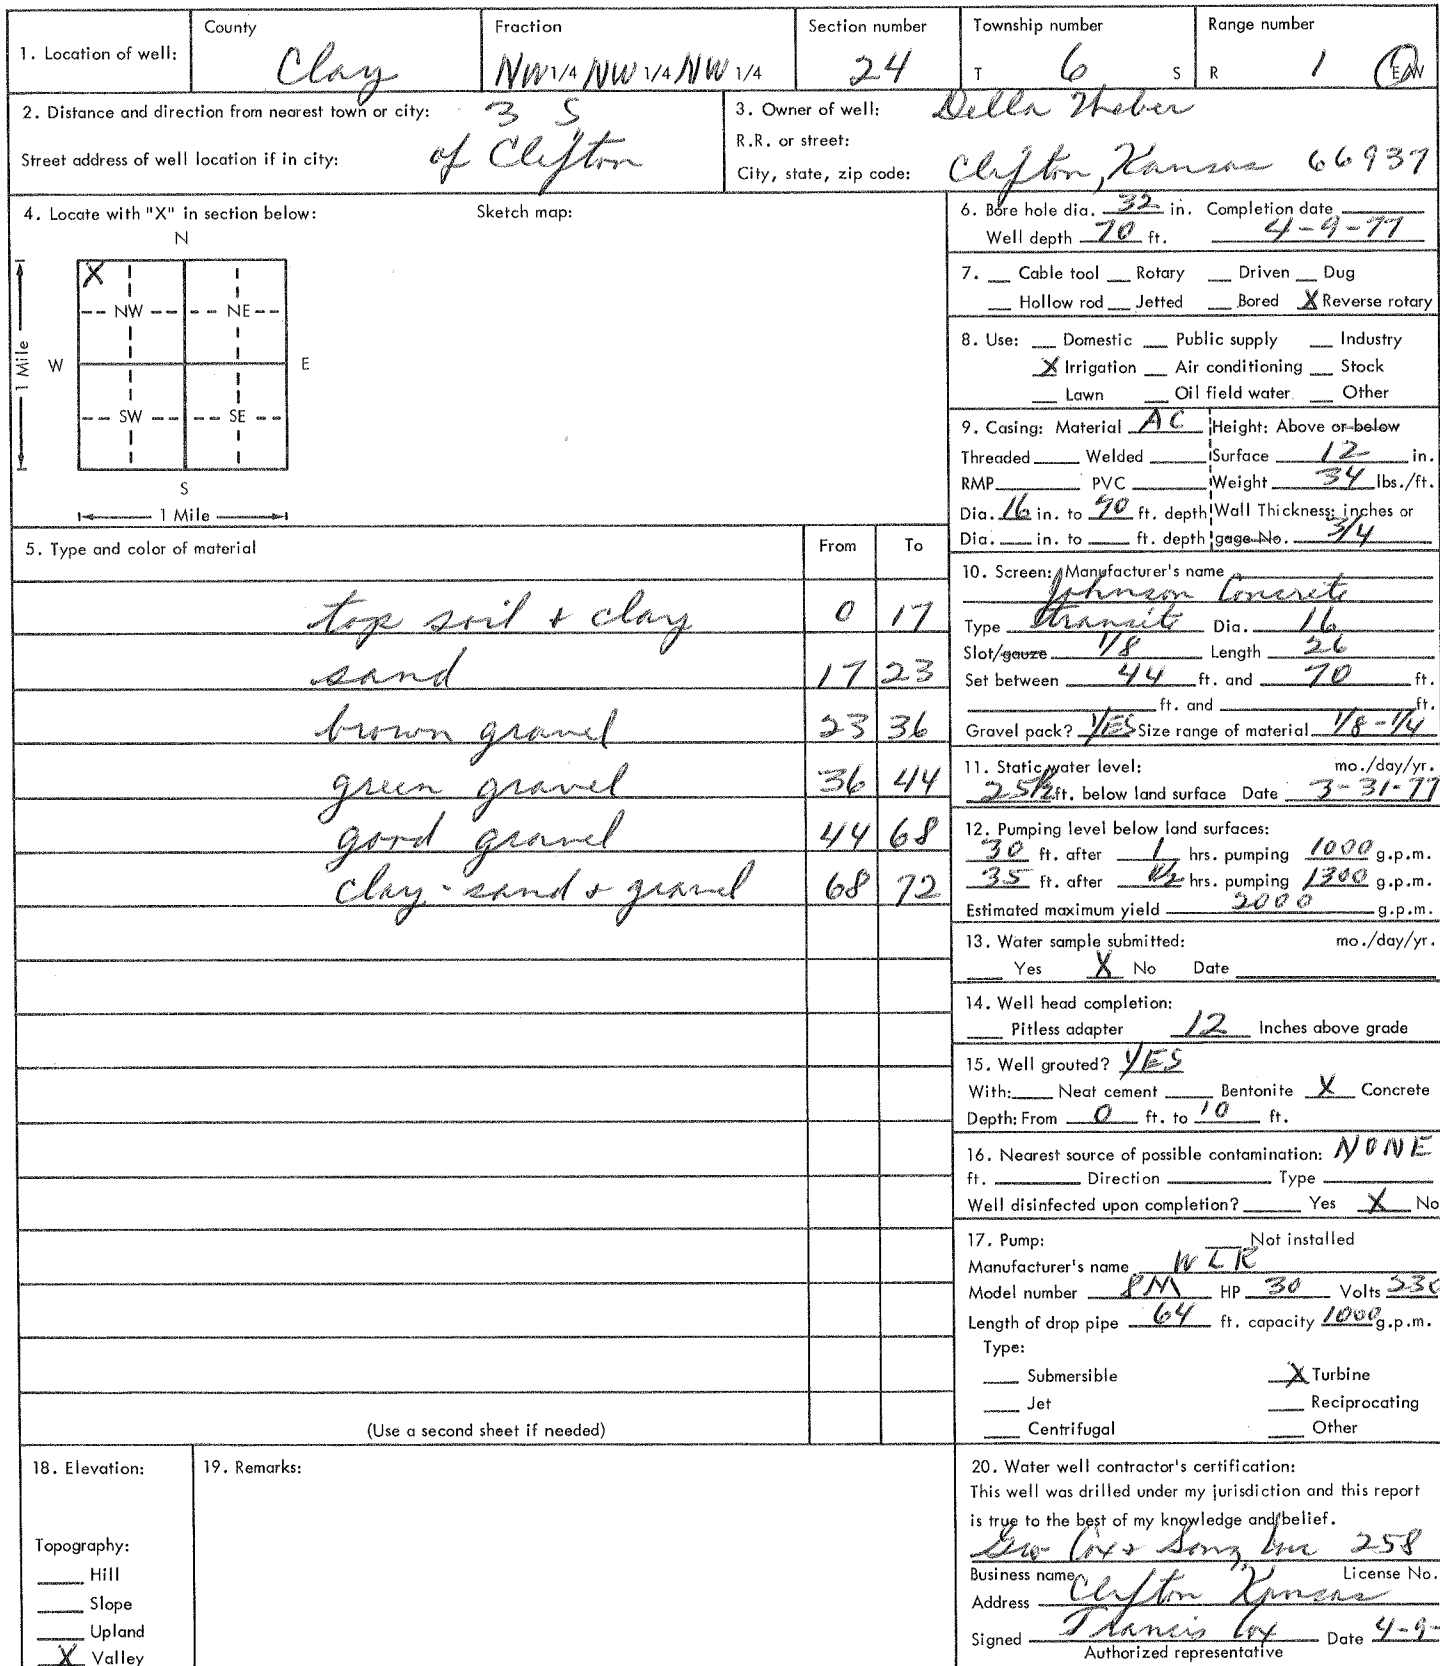 County Fraction Section number Township number Range number
1. Location of well: Clay NW 1/4 NW 1/4 NW 1/4 24 T 6 S R 1 E/W
2. Distance and direction from nearest town or city: 3 S
Street address of well location if in city: of Clifton
3. Owner of well: Della
R.R. or street:
City, state, zip code: Clifton, Kansas 66937
4. Locate with "X" in section below: Sketch map:
N
X
NW NE
1 Mile W E
SW SE
S
1 Mile
5. Type and color of material From To
top soil & clay 0 17
sand 17 23
brown gravel 23 36
green gravel 36 44
good gravel 44 68
clay - sand & gravel 68 72
(Use a second sheet if needed)
6. Bore hole dia. 32 in. Completion date
Well depth 70 ft. 4-9-77
7. Cable tool Rotary Driven Dug
Hollow rod Jetted Bored X Reverse rotary
8. Use: Domestic Public supply Industry
X Irrigation Air conditioning Stock
Lawn Oil field water Other
9. Casing: Material AC Height: Above or below
Threaded Welded Surface 12 in.
RMP PVC Weight 34 lbs./ft.
Dia. 16 in. to 70 ft. depth Wall Thickness: inches or
Dia. in. to ft. depth gage No. 3/4
10. Screen: Manufacturer's name
Johnson Concrete
Type transite Dia. 16
Slot/gauze 1/8 Length 26
Set between 44 ft. and 70 ft.
ft. and ft.
Gravel pack? YES Size range of material 1/8-1/4
11. Static water level: mo./day/yr.
25 1/2 ft. below land surface Date 3-31-77
12. Pumping level below land surfaces:
30 ft. after 1 hrs. pumping 1000 g.p.m.
35 ft. after 1/2 hrs. pumping 1300 g.p.m.
Estimated maximum yield 2000 g.p.m.
13. Water sample submitted: mo./day/yr.
Yes X No Date
14. Well head completion:
Pitless adapter 12 Inches above grade
15. Well grouted? YES
With: Neat cement Bentonite X Concrete
Depth: From 0 ft. to 10 ft.
16. Nearest source of possible contamination: NONE
ft. Direction Type
Well disinfected upon completion? Yes X No
17. Pump: Not installed
Manufacturer's name WLR
Model number 8M HP 30 Volts 230
Length of drop pipe 64 ft. capacity 1000 g.p.m.
Type:
Submersible X Turbine
Jet Reciprocating
Centrifugal Other
18. Elevation:
Topography:
Hill
Slope
Upland
X Valley
19. Remarks:
20. Water well contractor's certification:
This well was drilled under my jurisdiction and this report
is true to the best of my knowledge and belief.
Geo Cox & Sons, Inc 258
Business name License No.
Address Clifton Kansas
Signed Francis Cox Date 4-9-
Authorized representative